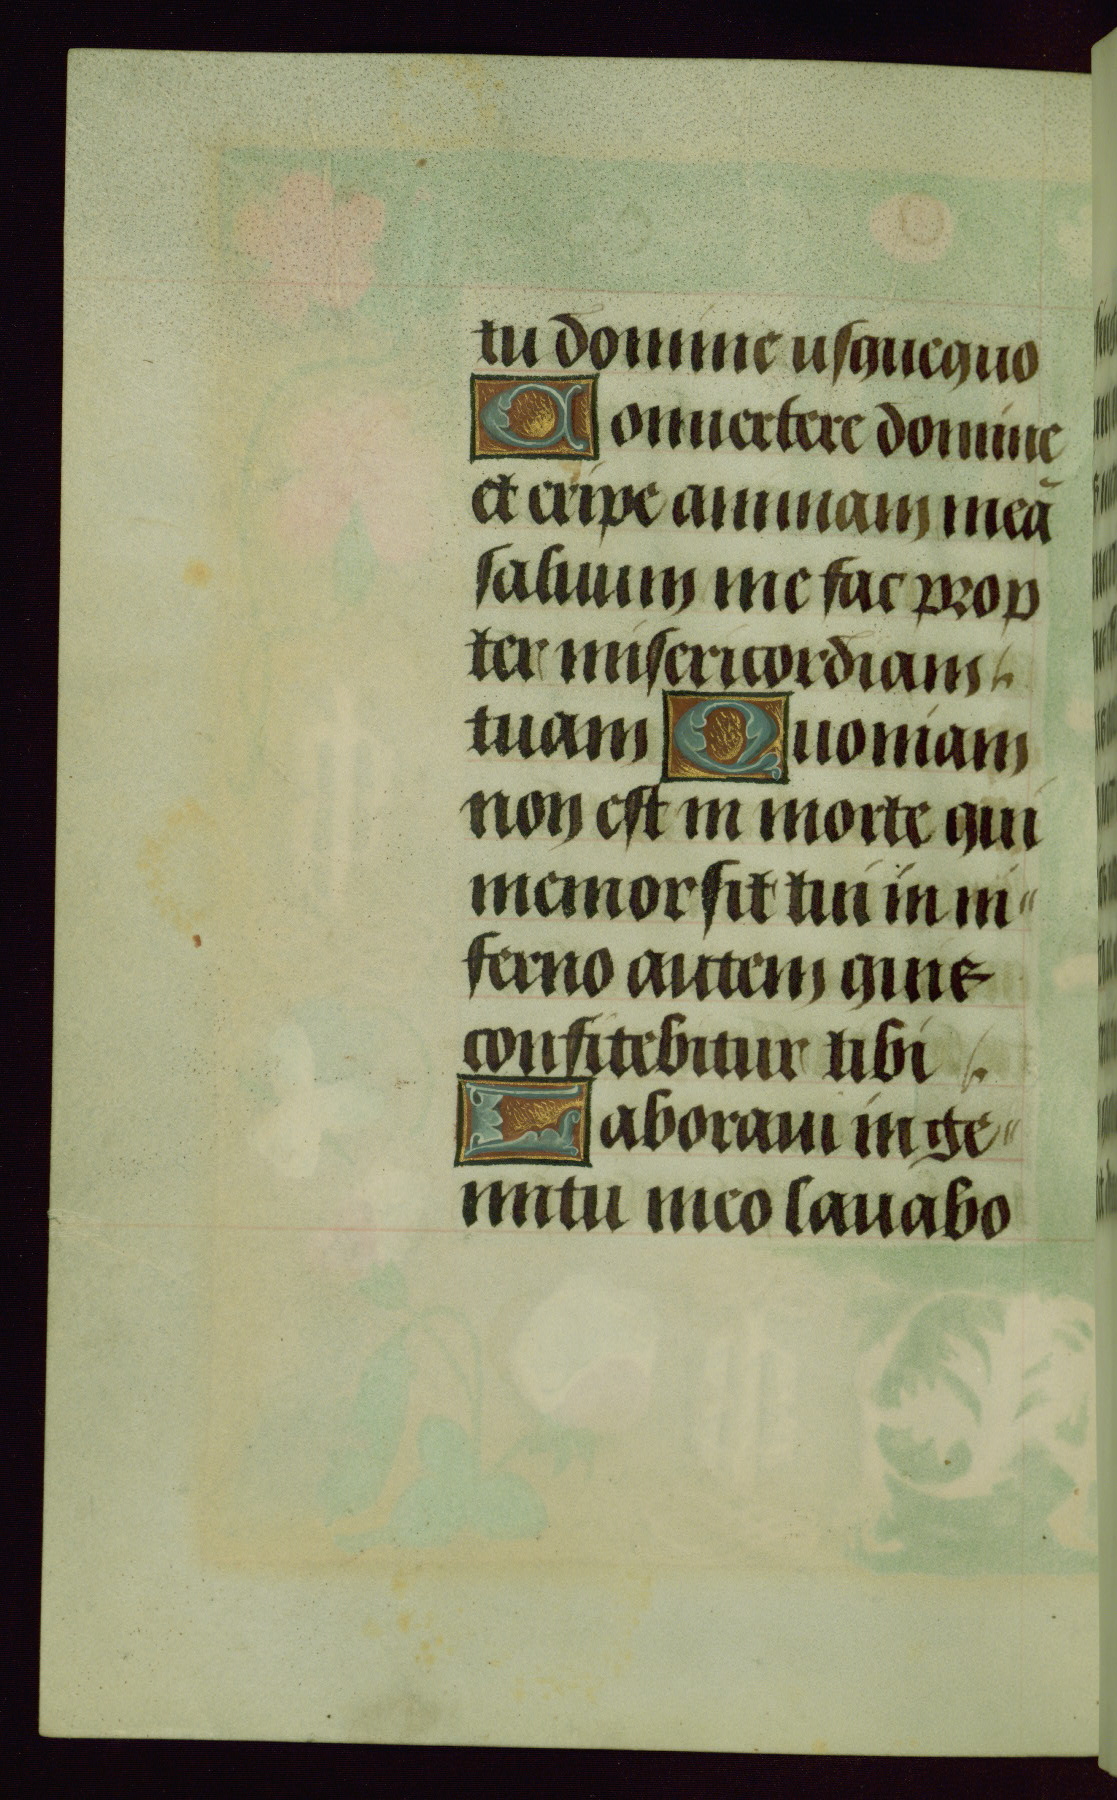 tu domine usquequo
Conuertere domine
et eripe animam meã
saluum me fac prop
ter misericordiam
tuam Quoniam
non est in morte qui
memor sit tui in in
ferno autem quis
confitebitur tibi
Laboraui in ge
mitu meo lauabo